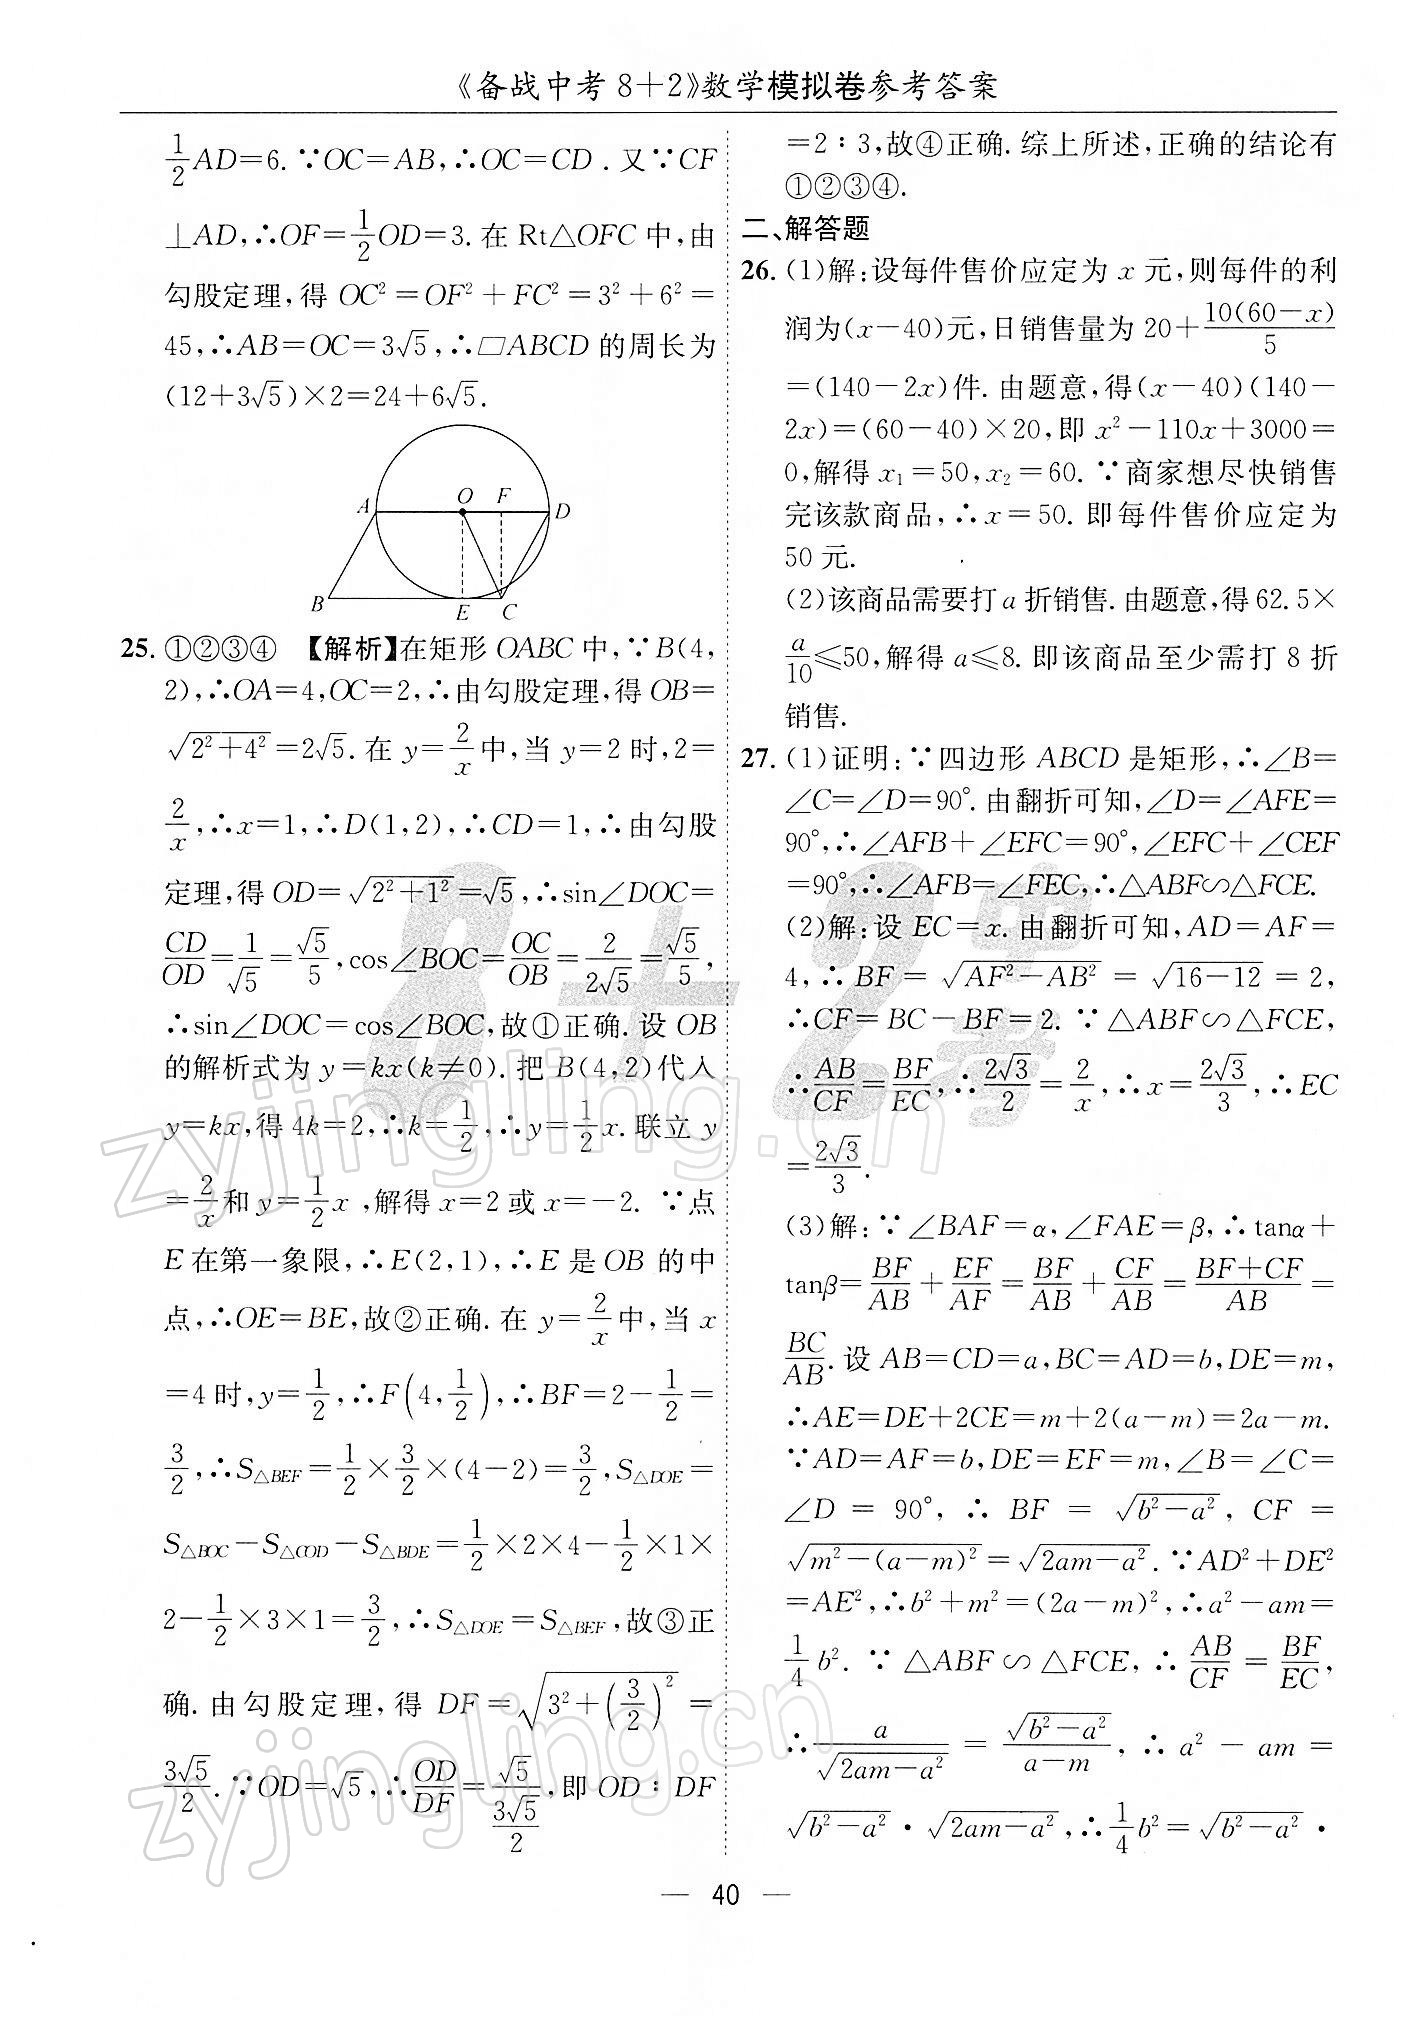 《备战中考8+2》数学模拟卷参考答案
1/2 AD=6. ∵OC=AB,∴OC=CD. 又∵CF
⊥AD,∴OF=1/2 OD=3. 在 Rt△OFC 中,由
勾股定理,得 OC²=OF²+FC²=3²+6²=
45,∴AB=OC=3√5,∴▱ABCD 的周长为
(12+3√5)×2=24+6√5.
A O F D
B E C
25. ①②③④ 【解析】在矩形 OABC 中,∵B(4,
2),∴OA=4,OC=2,∴由勾股定理,得 OB=
√(2²+4²)=2√5. 在 y=2/x 中,当 y=2 时,2=
2/x,∴x=1,∴D(1,2),∴CD=1,∴由勾股
定理,得 OD=√(2²+1²)=√5,∴sin∠DOC=
CD/OD=1/√5=√5/5,cos∠BOC=OC/OB=2/(2√5)=√5/5,
∴sin∠DOC=cos∠BOC,故①正确. 设 OB
的解析式为 y=kx(k≠0). 把 B(4,2)代入
y=kx,得 4k=2,∴k=1/2,∴y=1/2 x. 联立 y
=2/x 和 y=1/2 x,解得 x=2 或 x=-2. ∵点
E 在第一象限,∴E(2,1),∴E 是 OB 的中
点,∴OE=BE,故②正确. 在 y=2/x 中,当 x
=4 时,y=1/2,∴F(4,1/2),∴BF=2-1/2=
3/2,∴S△BEF=1/2×3/2×(4-2)=3/2,S△DOE=
S△BOC-S△COD-S△BDE=1/2×2×4-1/2×1×
2-1/2×3×1=3/2,∴S△DOE=S△BEF,故③正
确. 由勾股定理,得 DF=√(3²+(3/2)²)=
3√5/2. ∵OD=√5,∴OD/DF=√5/(3√5/2),即 OD∶DF
=2∶3,故④正确. 综上所述,正确的结论有
①②③④.
二、解答题
26. (1)解:设每件售价应定为 x 元,则每件的利
润为(x-40)元,日销售量为 20+10(60-x)/5
=(140-2x)件. 由题意,得(x-40)(140-
2x)=(60-40)×20,即 x²-110x+3000=
0,解得 x₁=50,x₂=60. ∵商家想尽快销售
完该款商品,∴x=50. 即每件售价应定为
50 元.
(2)该商品需要打 a 折销售. 由题意,得 62.5×
a/10≤50,解得 a≤8. 即该商品至少需打 8 折
销售.
27. (1)证明:∵四边形 ABCD 是矩形,∴∠B=
∠C=∠D=90°. 由翻折可知,∠D=∠AFE=
90°,∴∠AFB+∠EFC=90°,∠EFC+∠CEF
=90°,∴∠AFB=∠FEC,∴△ABF∽△FCE.
(2)解:设 EC=x. 由翻折可知,AD=AF=
4,∴BF=√(AF²-AB²)=√(16-12)=2,
∴CF=BC-BF=2. ∵△ABF∽△FCE,
∴AB/CF=BF/EC,∴2√3/2=2/x,∴x=2√3/3,∴EC
=2√3/3.
(3)解:∵∠BAF=α,∠FAE=β,∴tanα+
tanβ=BF/AB+EF/AF=BF/AB+CF/AB=(BF+CF)/AB=
BC/AB. 设 AB=CD=a,BC=AD=b,DE=m,
∴AE=DE+2CE=m+2(a-m)=2a-m.
∵AD=AF=b,DE=EF=m,∠B=∠C=
∠D=90°,∴BF=√(b²-a²),CF=
√(m²-(a-m)²)=√(2am-a²). ∵AD²+DE²
=AE²,∴b²+m²=(2a-m)²,∴a²-am=
1/4 b². ∵△ABF∽△FCE,∴AB/CF=BF/EC,
∴a/√(2am-a²)=√(b²-a²)/(a-m),∴a²-am=
√(b²-a²)·√(2am-a²),∴1/4 b²=√(b²-a²)·
— 40 —
8+2 中考
zyjingling.cn
zyjingling.cn